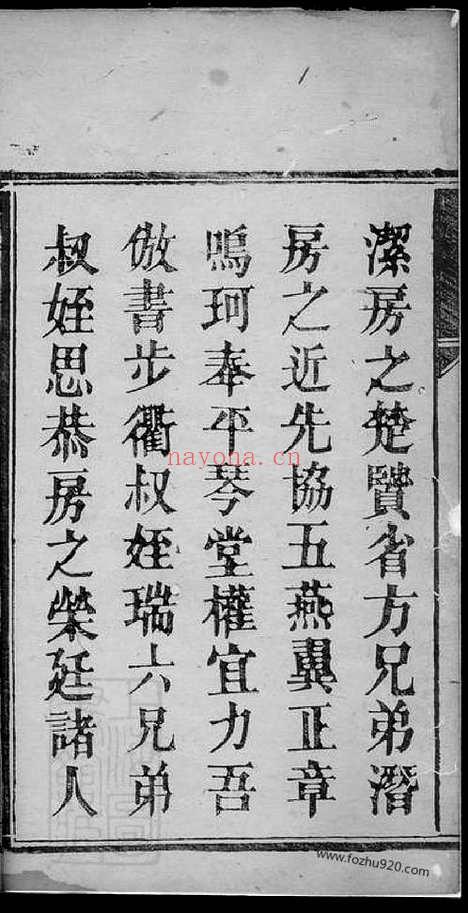 潔房之楚贒省方兄弟潛
房之近先協五燕翼正章
鳴珂奉平琴堂權宜力吾
倣書步衢叔姪瑞六兄弟
叔姪思恭房之榮廷諸人
nayona.cn
www.fozhu920.com